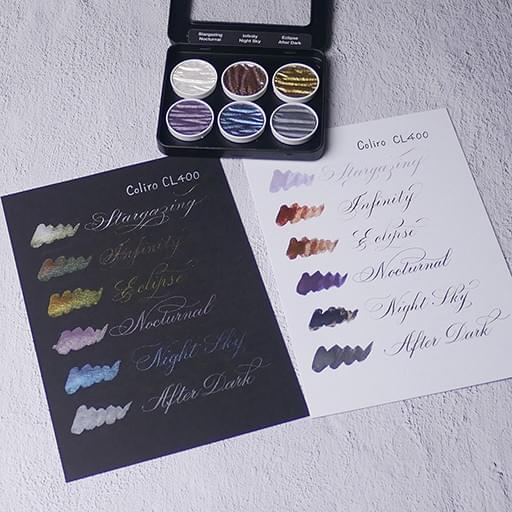 Stargazing Infinity Eclipse
Nocturnal Night Sky After Dark
Coliro CL400
Stargazing
Infinity
Eclipse
Nocturnal
Night Sky
After Dark
Coliro CL400
Stargazing
Infinity
Eclipse
Nocturnal
Night Sky
After Dark